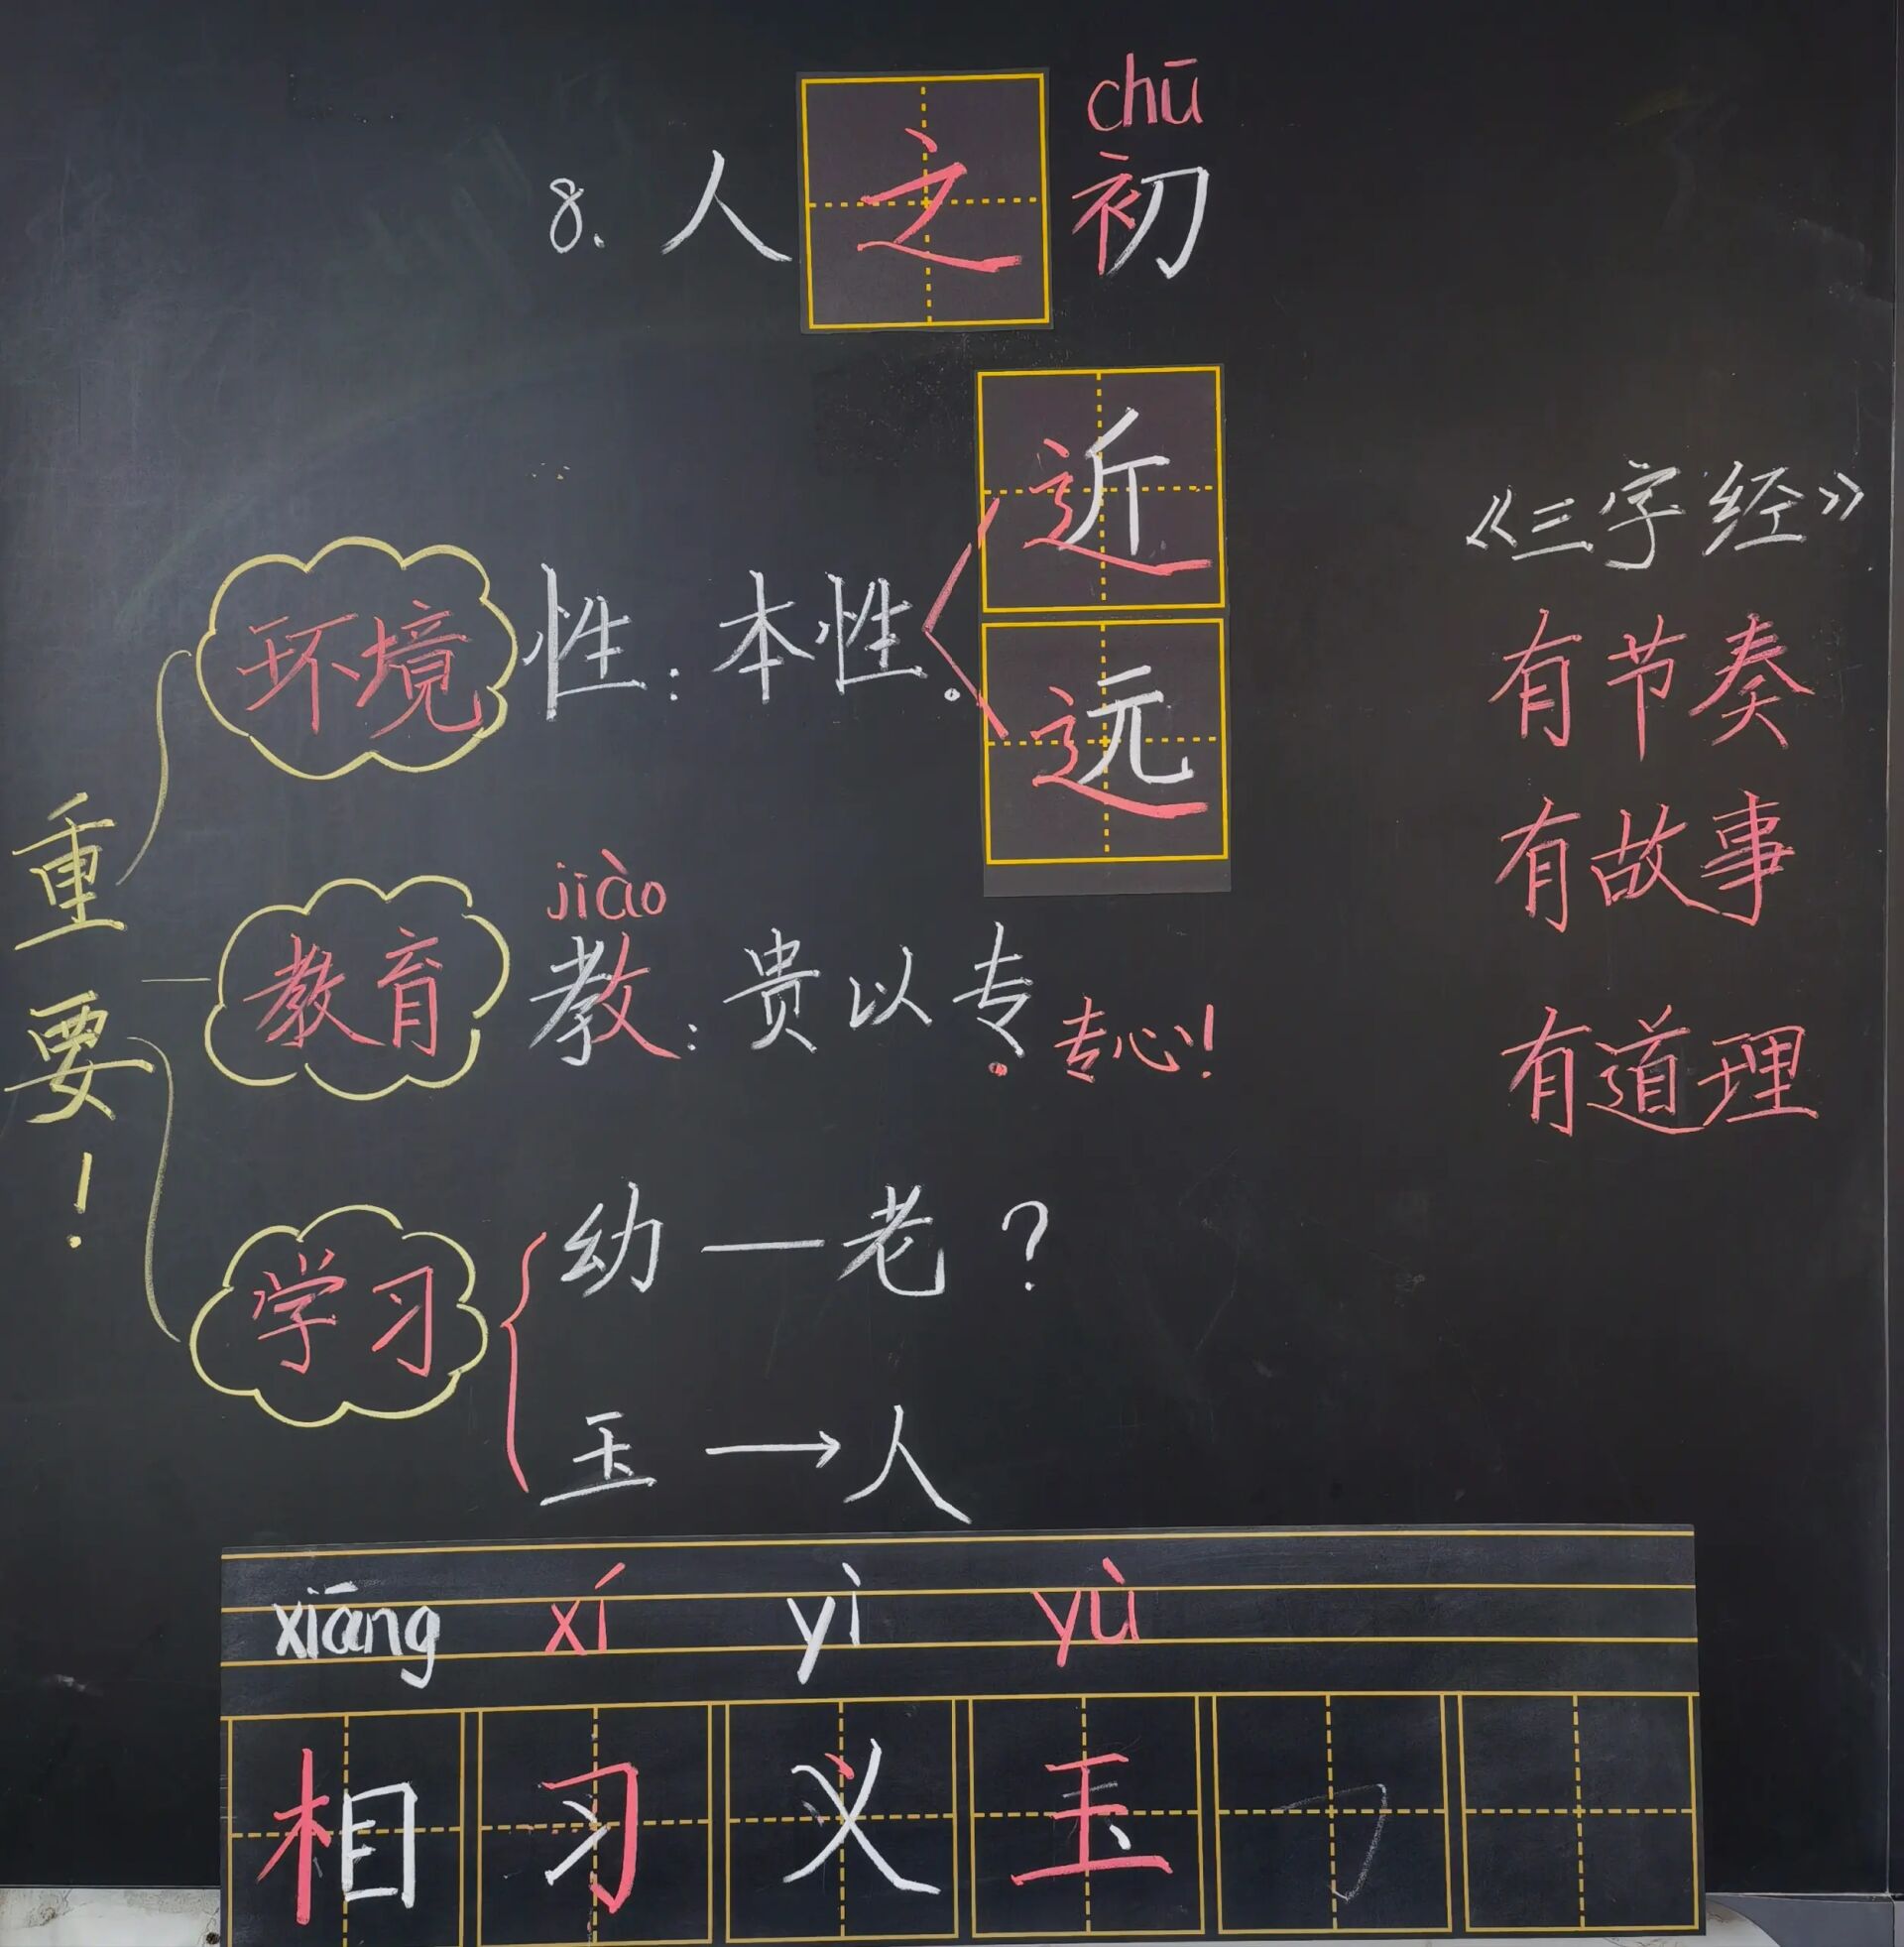 chū
8. 人之初
近
环境 性：本性。
远
《三字经》
有节奏
有故事
有道理
重要！
jiào
教育 教：贵以专 专心！
学习
幼—老？
玉→人
xiāng xí yì yù
相 习 义 玉